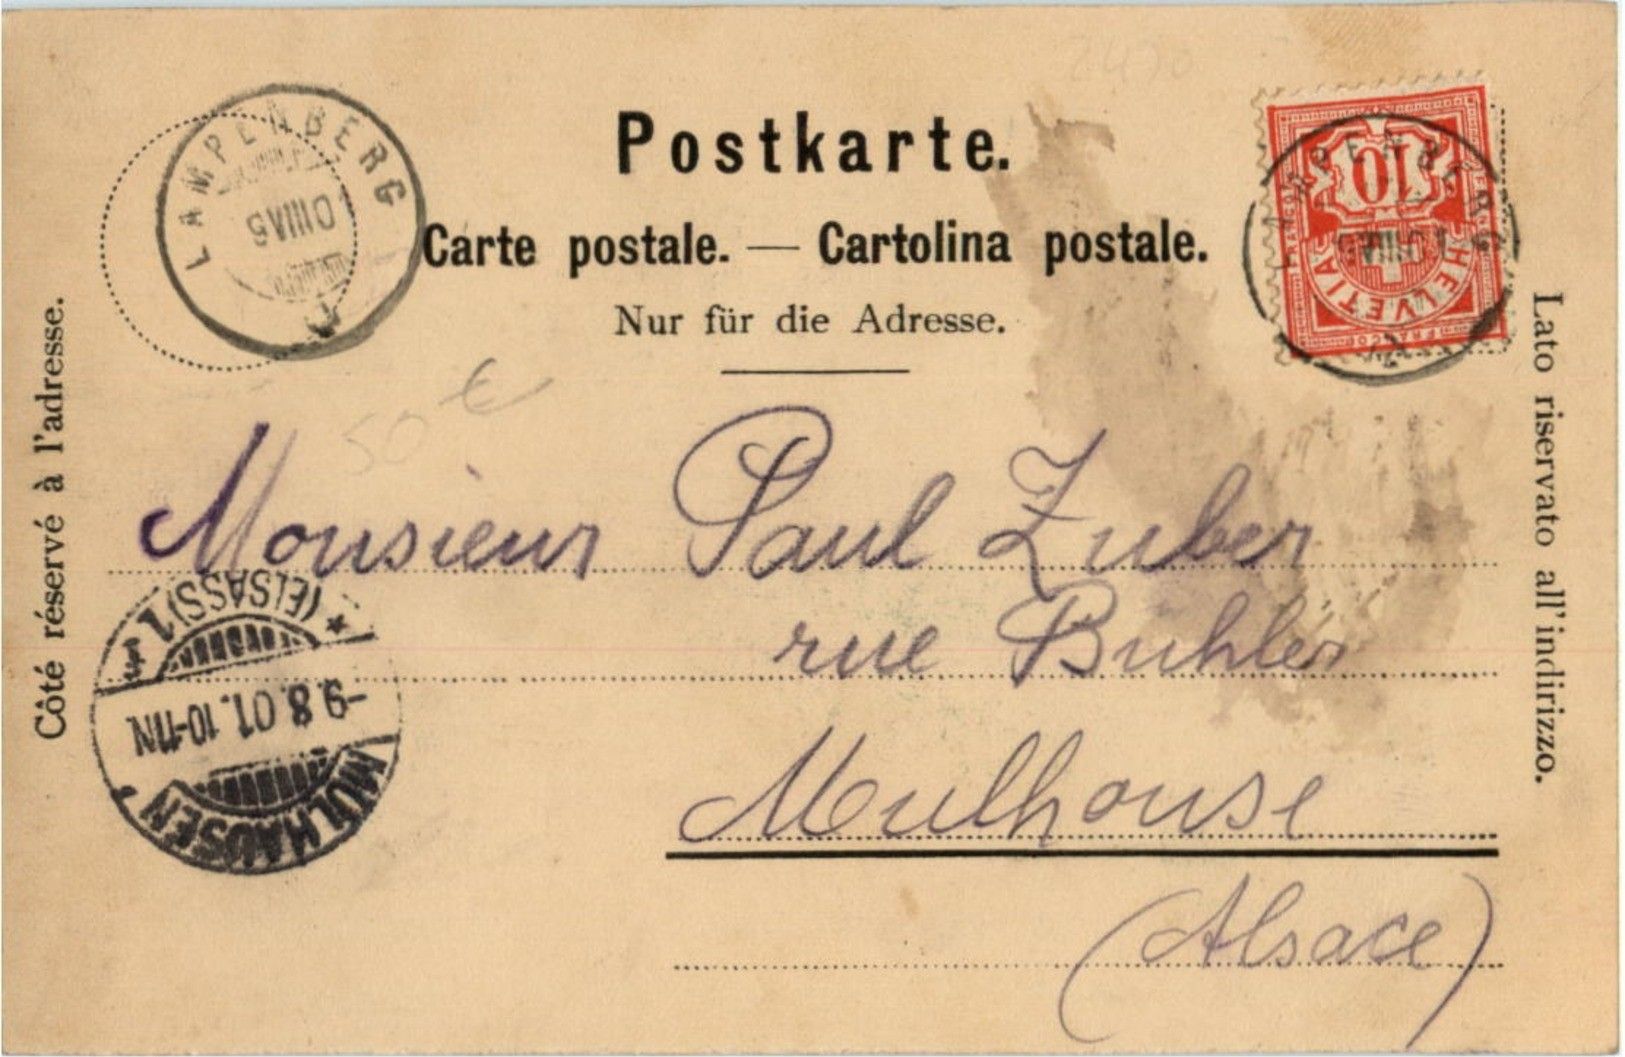 Postkarte.
Carte postale. — Cartolina postale.
Nur für die Adresse.
Côté réservé à l'adresse.
Lato riservato all'indirizzo.
LAMPENBERG
10
HELVETIA
FRANCO
LAMPENBERG
50 €
Monsieur Paul Zuber
rue Buhler
Mulhouse
(Alsace)
MÜLHAUSEN
-9.8.01. 10-11N
(ELSASS) 1